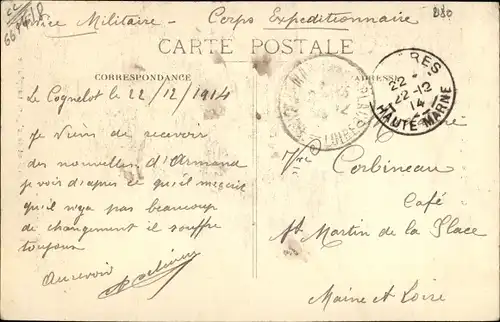 Service Militaire - Corps Expeditionnaire
CARTE POSTALE
CORRESPONDANCE
ADRESSE
RES
22 - 12
14
HAUTE MARNE
Le Cognelot le 22/12/1914
Je Viens de recevoir
des nouvelles d'Armand
je vois d'apres ce qu'il mecrit
qu'il nya pas beaucoup
de changement il souffre
toujours
Au revoir
Corbineau
Café
St Martin de la Place
Maine et Loire